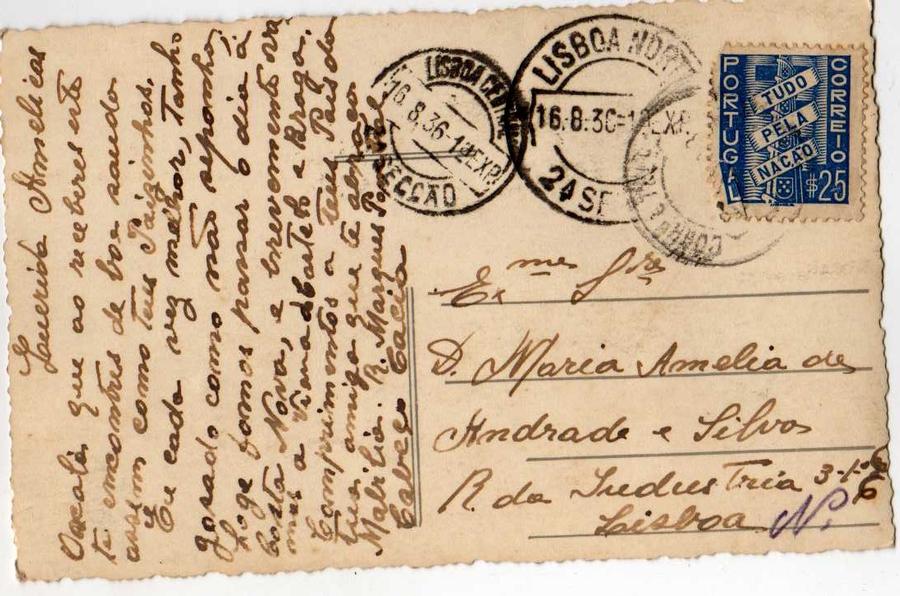 Querida Amelicas
Oxalá que ao receberes esta
te encontres de boa saude
assim como teus Paizinhos.
Eu cada vez melhor, tenho
gosado como não suponho,
hoje fomos passar o dia á
Costa Nova, e brevemente va
mos a Viana do Castelo e Braga.
Comprimentos a teus Pais da
tua amiga que te abraça
Marilia. R. Marques
Cacia
LISBOA CENTRAL
16.8.36-12EXP
SECCÃO
LISBOA NORTE
16.8.36-12EXP.
2ª SE
PORTUGAL
CORREIO
TUDO
PELA
NAÇÃO
$25
Exmª Srª
D. Maria Amelia de
Andrade e Silva
R. da Industria 3-1º E
Lisboa N.